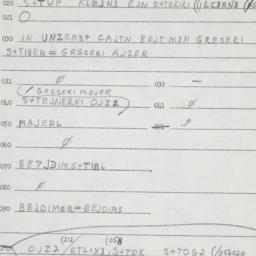 020 S+TUP KLEJNE EJN S+TOZIKI
021 O
030 IN UNZERST CAJTN BOJT MEN GRESERI
S+TIBER = GRESERI AJZER
031 ø 032 —
040 (GRESERI MOJER
S+TEJNERNI OJZZ) 041 ø
050 MAJERL 051
060 ø
070 BE7JDIMS+TIBL
080 ø
090 BEJDIMER = BEJDIMS
(212 (058
OJZZ / ETLIXI, S+TOK S+TOGZ (/056020